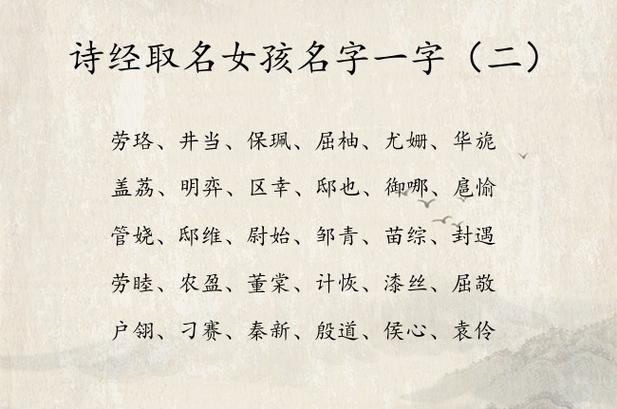 诗经取名女孩名字一字（二）
劳珞、井当、保珮、屈柚、尤姗、华旎
盖荔、明弈、区幸、邸也、御哪、扈愉
管娆、邸维、尉始、邹青、苗综、封遇
劳睦、农盈、董棠、计恢、漆丝、屈敬
户翎、刁赛、秦新、殷道、侯心、袁伶